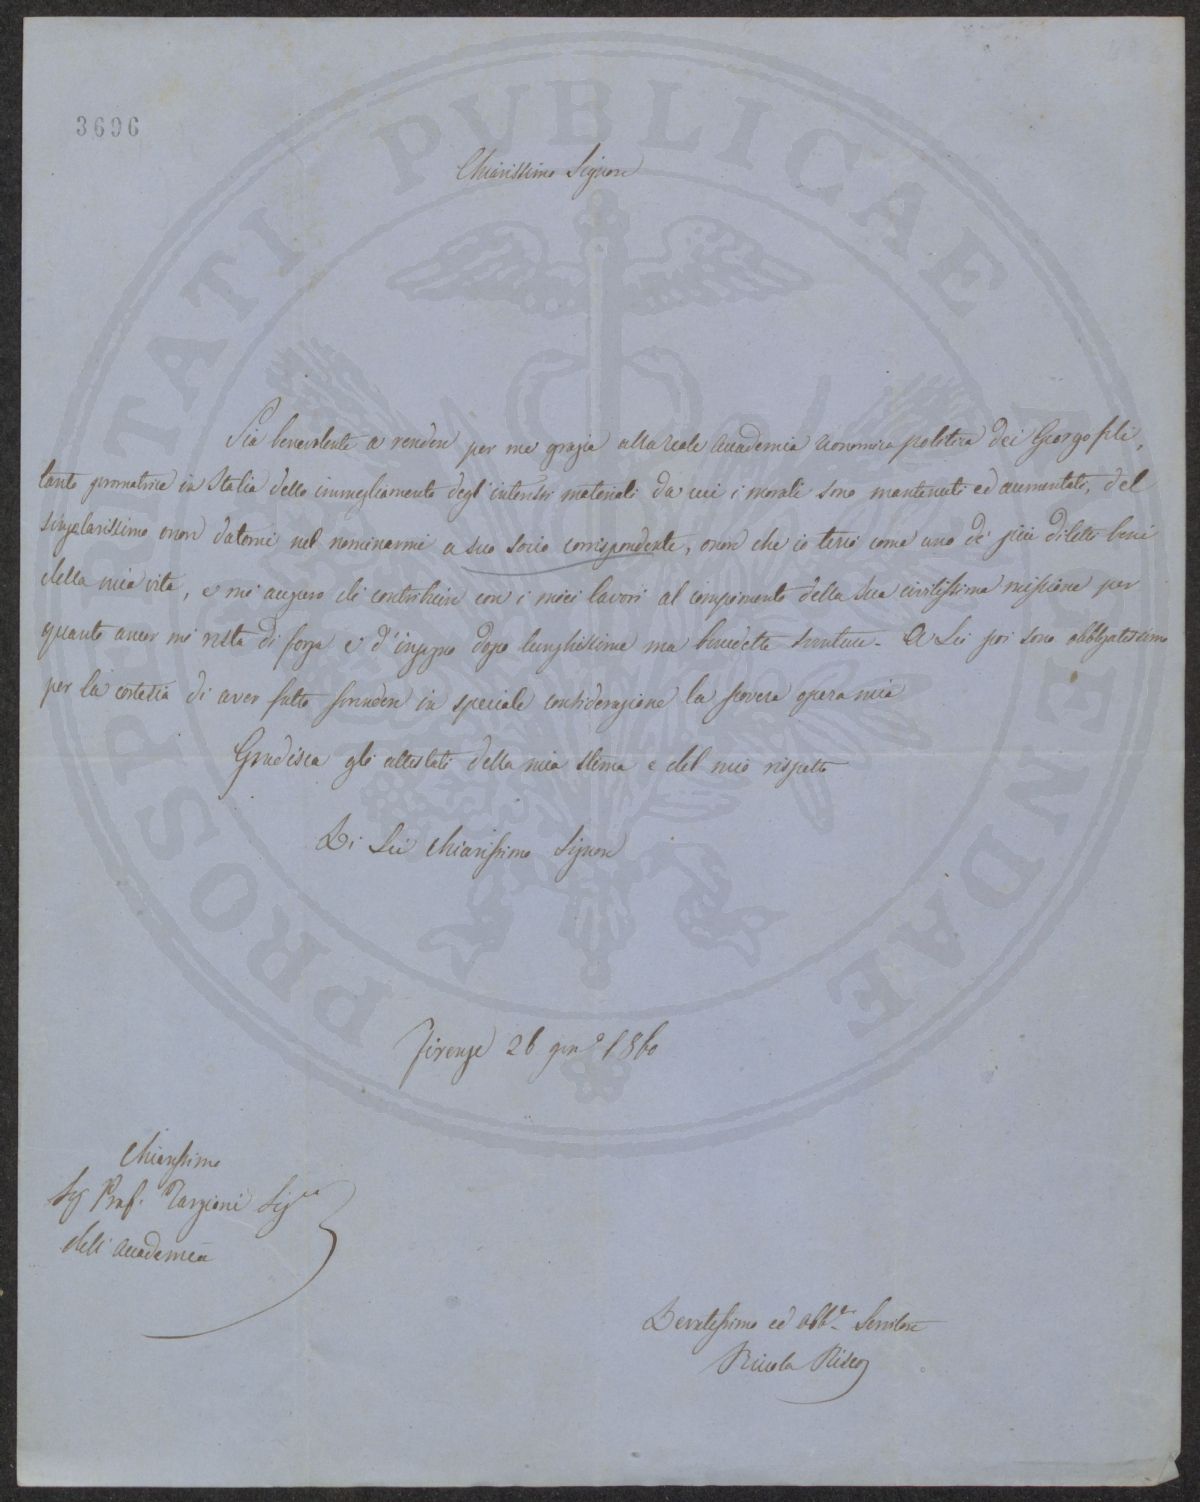 3696
PROSPERITATI PUBLICAE AUGENDAE
Chiarissimo Signore
Sia benevolente a rendere per me grazia alla reale Accademia economica politica dei Georgofili,
tanto promatrice in Italia dello immegliamento degl'interessi materiali da cui i morali sono mantenuti ed aumentati, del
singolarissimo onore datomi nel nominarmi a suo socio corrispondente, onore che io terrò come uno de' più diletti beni
della mia vita, e mi auguro di contribuire con i miei lavori al compimento della sua civilissima missione per
quanto ancor mi resta di forza e d'ingegno dopo lunghissime ma benedette sventure. A Lei poi sono obbligatissimo
per la cortesia di aver fatto prendere in speciale considerazione la povera opera mia
Gradisca gli attestati della mia stima e del mio rispetto
Di Lei Chiarissimo Signore
Firenze 26 genº 1860
Chiarissimo
Sg Prof. Targioni
dell'Accademia
Devotissimo ed obbº Servitore
Nicola